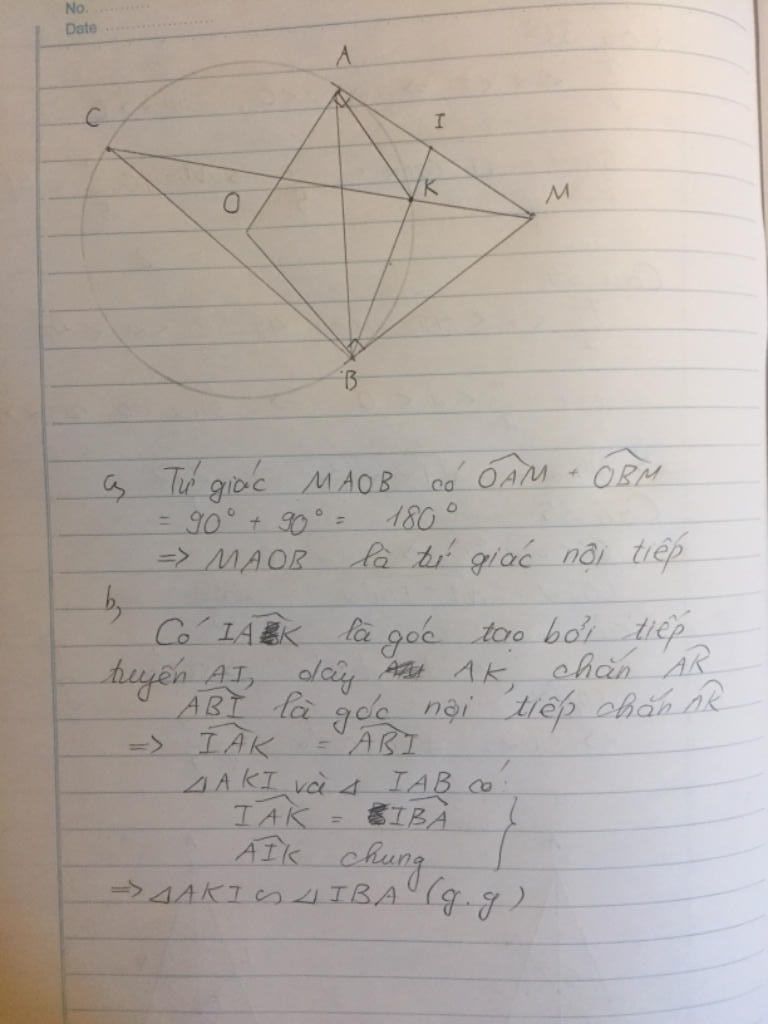 No. ............
Date ............
A
C
I
K
M
O
B
a, Tứ giác MAOB có OAM + OBM
= 90° + 90° = 180°
=> MAOB là tứ giác nội tiếp
b,
Có IAK là góc tạo bởi tiếp
tuyến AI, dây AK, chắn AK
ABI là góc nội tiếp chắn AK
=> IAK = ABI
△AKI và △ IAB có:
IAK = IBA
AIK chung
=> △AKI ∽ △IBA (g.g)